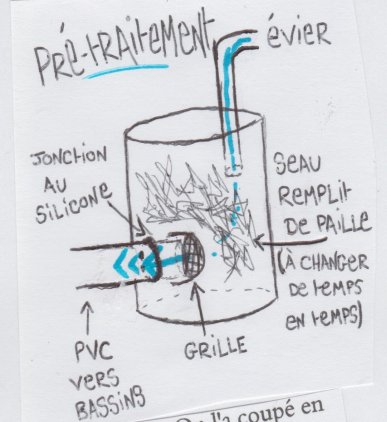 PRÉ-TRAITEMENT
ÉVIER
JONCTION
AU
SILICONE
SEAU
REMPLIT
DE PAILLE
(À CHANGER
DE TEMPS
EN TEMPS)
GRILLE
PVC
VERS
BASSINS
l'a coupé en